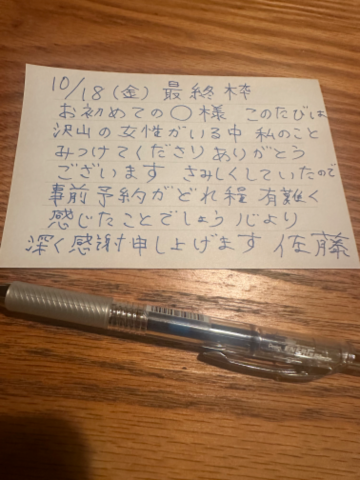 10/18(金) 最終枠
お初めての〇様 このたびは
沢山の女性がいる中 私のこと
みつけてくださり ありがとう
ございます さみしくしていたので
事前予約がどれ程 有難く
感じたことでしょう 心より
深く感謝申し上げます 佐藤